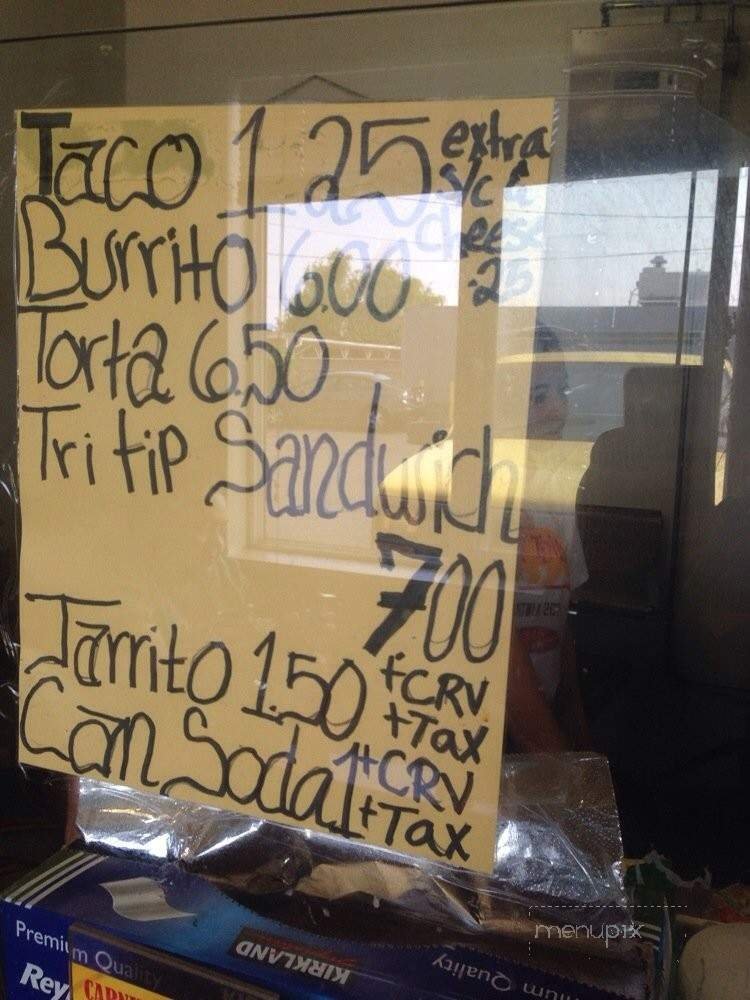 Taco 1.25 extra
s/c &
cheese
.25
Burrito 6.00
Torta 6.50
Tri tip Sandwich
7.00
Jarrito 1.50 +CRV
+Tax
Can Soda 1 +CRV
+Tax
KIRKLAND
Premium Quality
Premium Quality
Rey
menupix